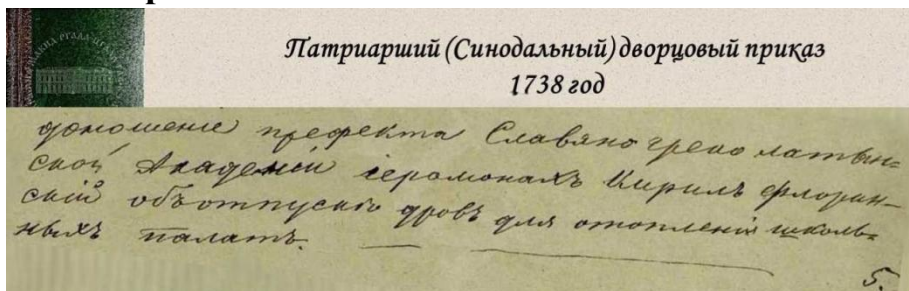 Патриарший (Синодальный) дворцовый приказ
1738 год
доношение префекта Славяно греко латын-
ской Академіи іеромонахъ Кирилъ Флорин-
скій объ отпускѣ дровъ для отопленія школь-
ныхъ палатъ.
5.